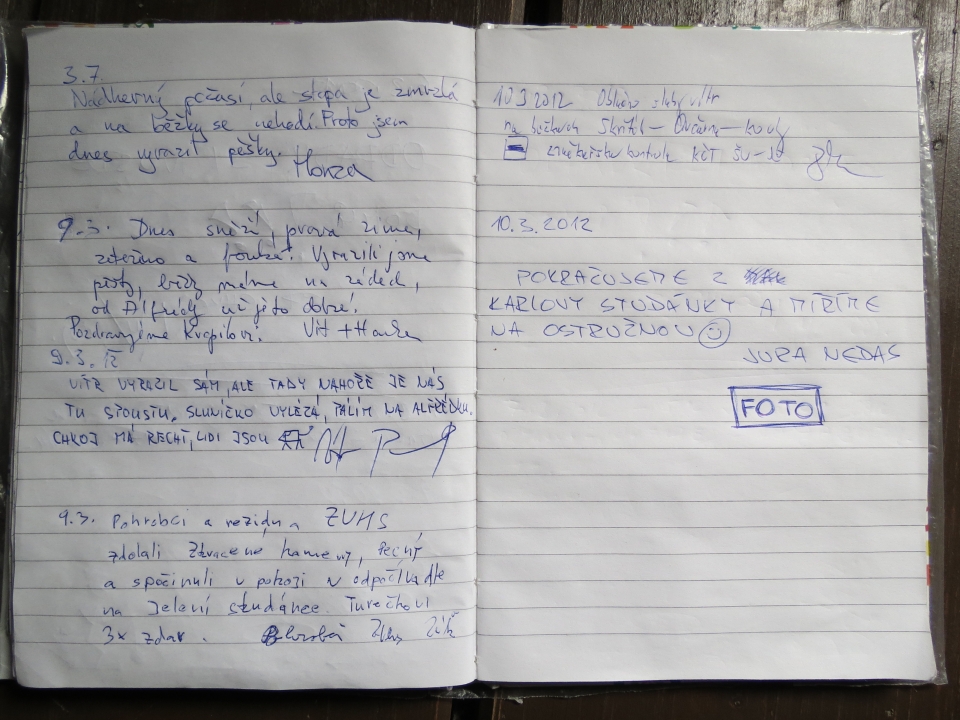 3.7.
Nádherný počasí, ale stopa je zmrzlá
a na běžky se nehodí. Proto jsem
dnes vyrazil pěšky.
Honza
9.3. Dnes sněží, pravá zima,
a fouká! Vyrazili jsme
pěšky, běžky máme na zádech,
od Alfrédky už je to dobré!
Pozdravujeme Vít + Hanka
9.3.
VÍTR VYRAZIL SÁM, ALE TADY NAHOŘE JE NÁS
TU SLUNÍČKO VYLÉZÁ, PÁLÍM NA ALFRÉDKU.
MÁ RECHT, LIDI JSOU
9.3. Pohrobci a rezidua ZUHS
zdolali Ztracené kameny, Pecný
a spočinuli v pokoji v odpočívadle
na Jelení studánce. Turečkovi
3x zdar.
10 3 2012 slabý vítr
na běžkách Skřítek - Ovčárna -
kontrola KČT
10.3.2012
POKRAČUJEME Z
KARLOVY STUDÁNKY A MÍŘÍME
NA OSTRUŽNOU
JURA NEDAS
FOTO